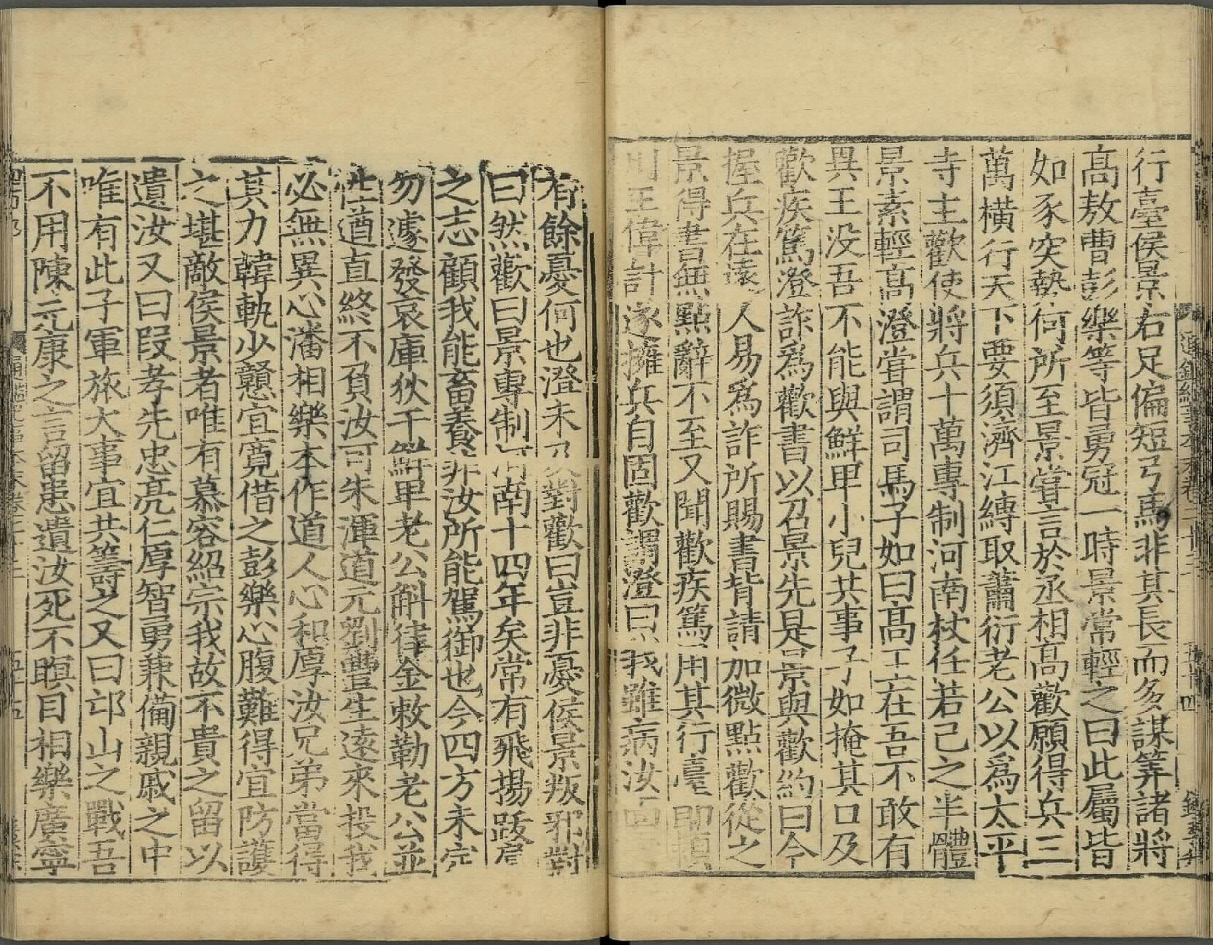 行臺侯景右足偏短弓馬非其長而多謀筭諸將
高敖曹彭樂等皆勇冠一時景常輕之曰此屬皆
如豕突勢何所至景甞言於丞相高歡願得兵三
萬橫行天下要須濟江縛取蕭衍老公以爲太平
寺主歡使將兵十萬專制河南杖任若己之半體
景素輕高澄甞謂司馬子如曰高王在吾不敢有
異王没吾不能與鮮卑小兒共事子如掩其口及
歡疾篤澄詐爲歡書以召景先是景與歡約曰今
握兵在遠人易爲詐所賜書背請加微點歡從之
景得書無點辭不至又聞歡疾篤用其行臺郎
川王偉計遂擁兵自固歡謂澄曰我雖病汝
有餘憂何也澄未及對歡曰豈非憂侯景叛邪對
曰然歡曰景專制河南十四年矣常有飛揚跋扈
之志顧我能畜養非汝所能駕御也今四方未定
勿遽發哀庫狄干鮮卑老公斛律金敕勒老公並
性遒直終不負汝可朱渾道元劉豐生遠來投我
必無異心潘相樂本作道人心和厚汝兄弟當得
其力韓軌少戇宜寬借之彭樂心腹難得宜防護
之堪敵侯景者唯有慕容紹宗我故不貴之留以
遺汝又曰段孝先忠亮仁厚智勇兼備親戚之中
唯有此子軍旅大事宜共籌之又曰邙山之戰吾
不用陳元康之言留患遺汝死不瞑目相樂廣寧